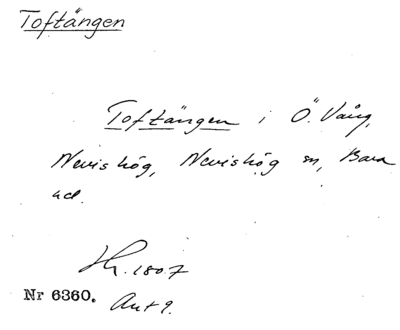 Toftängen
Toftängen i Ö. Vång,
Nevishög, Nevishög sn, Bara
hd.
Hr. 1807
Nr 6360. Ant 9.